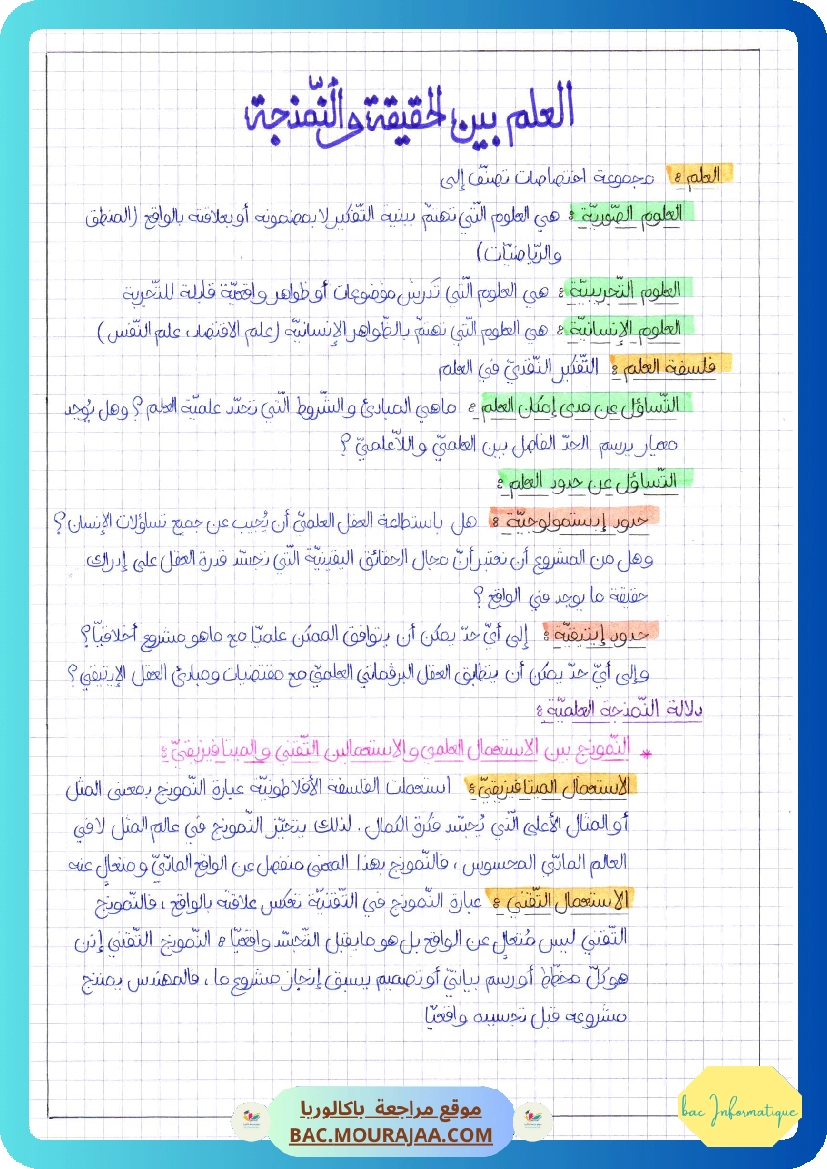 العلم بين الحقيقة والنّمذجة
العلم : مجموعة اختصاصات تصنّف إلى
العلوم الصّوريّة : هي العلوم الّتي تهتمّ ببنية التّفكير لا بمضمونه أو بعلاقته بالواقع (المنطق
والرّياضيّات)
العلوم التّجريبيّة : هي العلوم الّتي تدرس موضوعات أو ظواهر واقعيّة قابلة للتّجربة
العلوم الإنسانيّة : هي العلوم الّتي تهتمّ بالظّواهر الإنسانيّة (علم الاقتصاد، علم النّفس)
فلسفة العلم : التّفكير النّقديّ في العلم
التّساؤل عن مدى إمكان العلم : ماهي المبادئ والشّروط الّتي تحدّد علميّة العلم ؟ وهل يُوجد
معيار يرسم الحدّ الفاصل بين العلميّ واللّاعلميّ ؟
التّساؤل عن حدود العلم :
حدود إبستمولوجيّة : هل باستطاعة العقل العلميّ أن يُجيب عن جميع تساؤلات الإنسان ؟
وهل من المشروع أن نعتبر أنّ مجال الحقائق اليقينيّة الّتي تجسّد قدرة العقل على إدراك
حقيقة ما يوجد في الواقع ؟
حدود إيتيقيّة : إلى أيّ حدّ يمكن أن يتوافق الممكن علميّا مع ماهو مشروع أخلاقيّا ؟
وإلى أيّ حدّ يمكن أن يتطابق العقل البرڤماتي العلميّ مع مقتضيات ومبادئ العقل الإيتيقي ؟
دلالة النّمذجة العلميّة :
* النّموذج بين الاستعمال العلمي والاستعمالين التّقني والميتافيزيقيّ :
الاستعمال الميتافيزيقيّ : استعملت الفلسفة الأفلاطونيّة عبارة النّموذج بمعنى المثل
أو المثال الأعلى الّتي يُجسّد فكرة الكمال . لذلك يتحيّز النّموذج في عالم المثل لا في
العالم المادّي المحسوس ، فالنّموذج بهذا المعنى منفصل عن الواقع المادّيّ ومتعالٍ عنه
الاستعمال التّقني : عبارة النّموذج في التّقنيّة تعكس علاقته بالواقع ، فالنّموذج
التّقني ليس مُتعالٍ عن الواقع بل هو مايقبل التّجسّد واقعيّا : النّموذج التّقني إذن
هو كلّ مخطّط أو رسم بيانيّ أو تصميم يسبق إنجاز مشروع ما ، فالمهندس يمنذج
مشروعه قبل تجسيده واقعيّا
موقع مراجعة باكالوريا
BAC.MOURAJAA.COM
bac Informatique